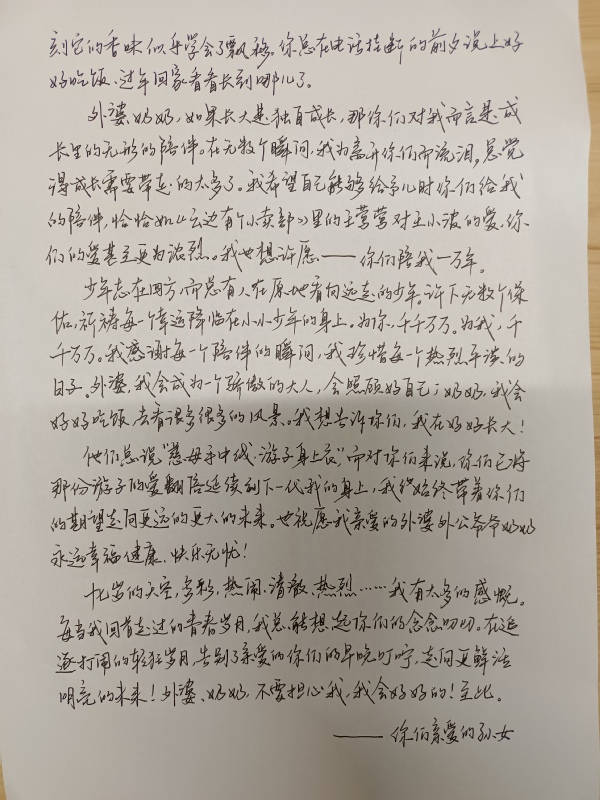 刻它的香味似乎学会了飘移。你总在电话挂断的前夕说上好
好吃饭、过年回家看看长到哪儿了。
外婆、奶奶,如果长大是独自成长,那你们对我而言是成
长里的无形的陪伴。在无数个瞬间,我为离开你们而流泪,总觉
得成长需要带走的太多了。我希望自己能够给予儿时你们给我
的陪伴,恰恰如《云边有个小卖部》里的王莺莺对王小波的爱,你
们的爱甚至更为浓烈。我也想许愿——你们陪我一万年。
少年志在四方,而总有人在原地看向远走的少年。许下无数个保
佑,祈祷每个幸运降临在小小少年的身上。为你,千千万万。为我,千
千万万。我感谢每一个陪伴的瞬间,我珍惜每个热烈平淡的
日子。外婆,我会成为一个骄傲的大人,会照顾好自己;奶奶,我会
好好吃饭,去看很多很多的风景。我想告诉你们,我在好好长大!
他们总说"慈母手中线,游子身上衣,"而对你们来说,你们已将
那份游子的爱翻倍延续到下一代我的身上,我始终带着你们
的期望走向更远的更大的未来。也祝愿我亲爱的外婆外公爷爷奶奶
永远幸福健康、快乐无忧!
十七岁的天空,多彩,热闹、清澈、热烈……我有太多的感慨。
每当我回首走过的青春岁月,我总能想起你们的念念叨叨。在追
逐打闹的轻狂岁月,告别了亲爱的你们的早晚叮咛,走向更鲜活
明亮的未来!外婆、奶奶,不要担心我,我会好好的!至此。
——你们亲爱的孙女